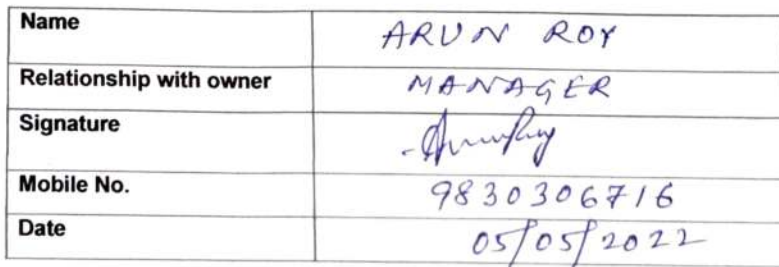 Name ARUN ROY
Relationship with owner MANAGER
Signature
Mobile No. 9830306716
Date 05/05/2022